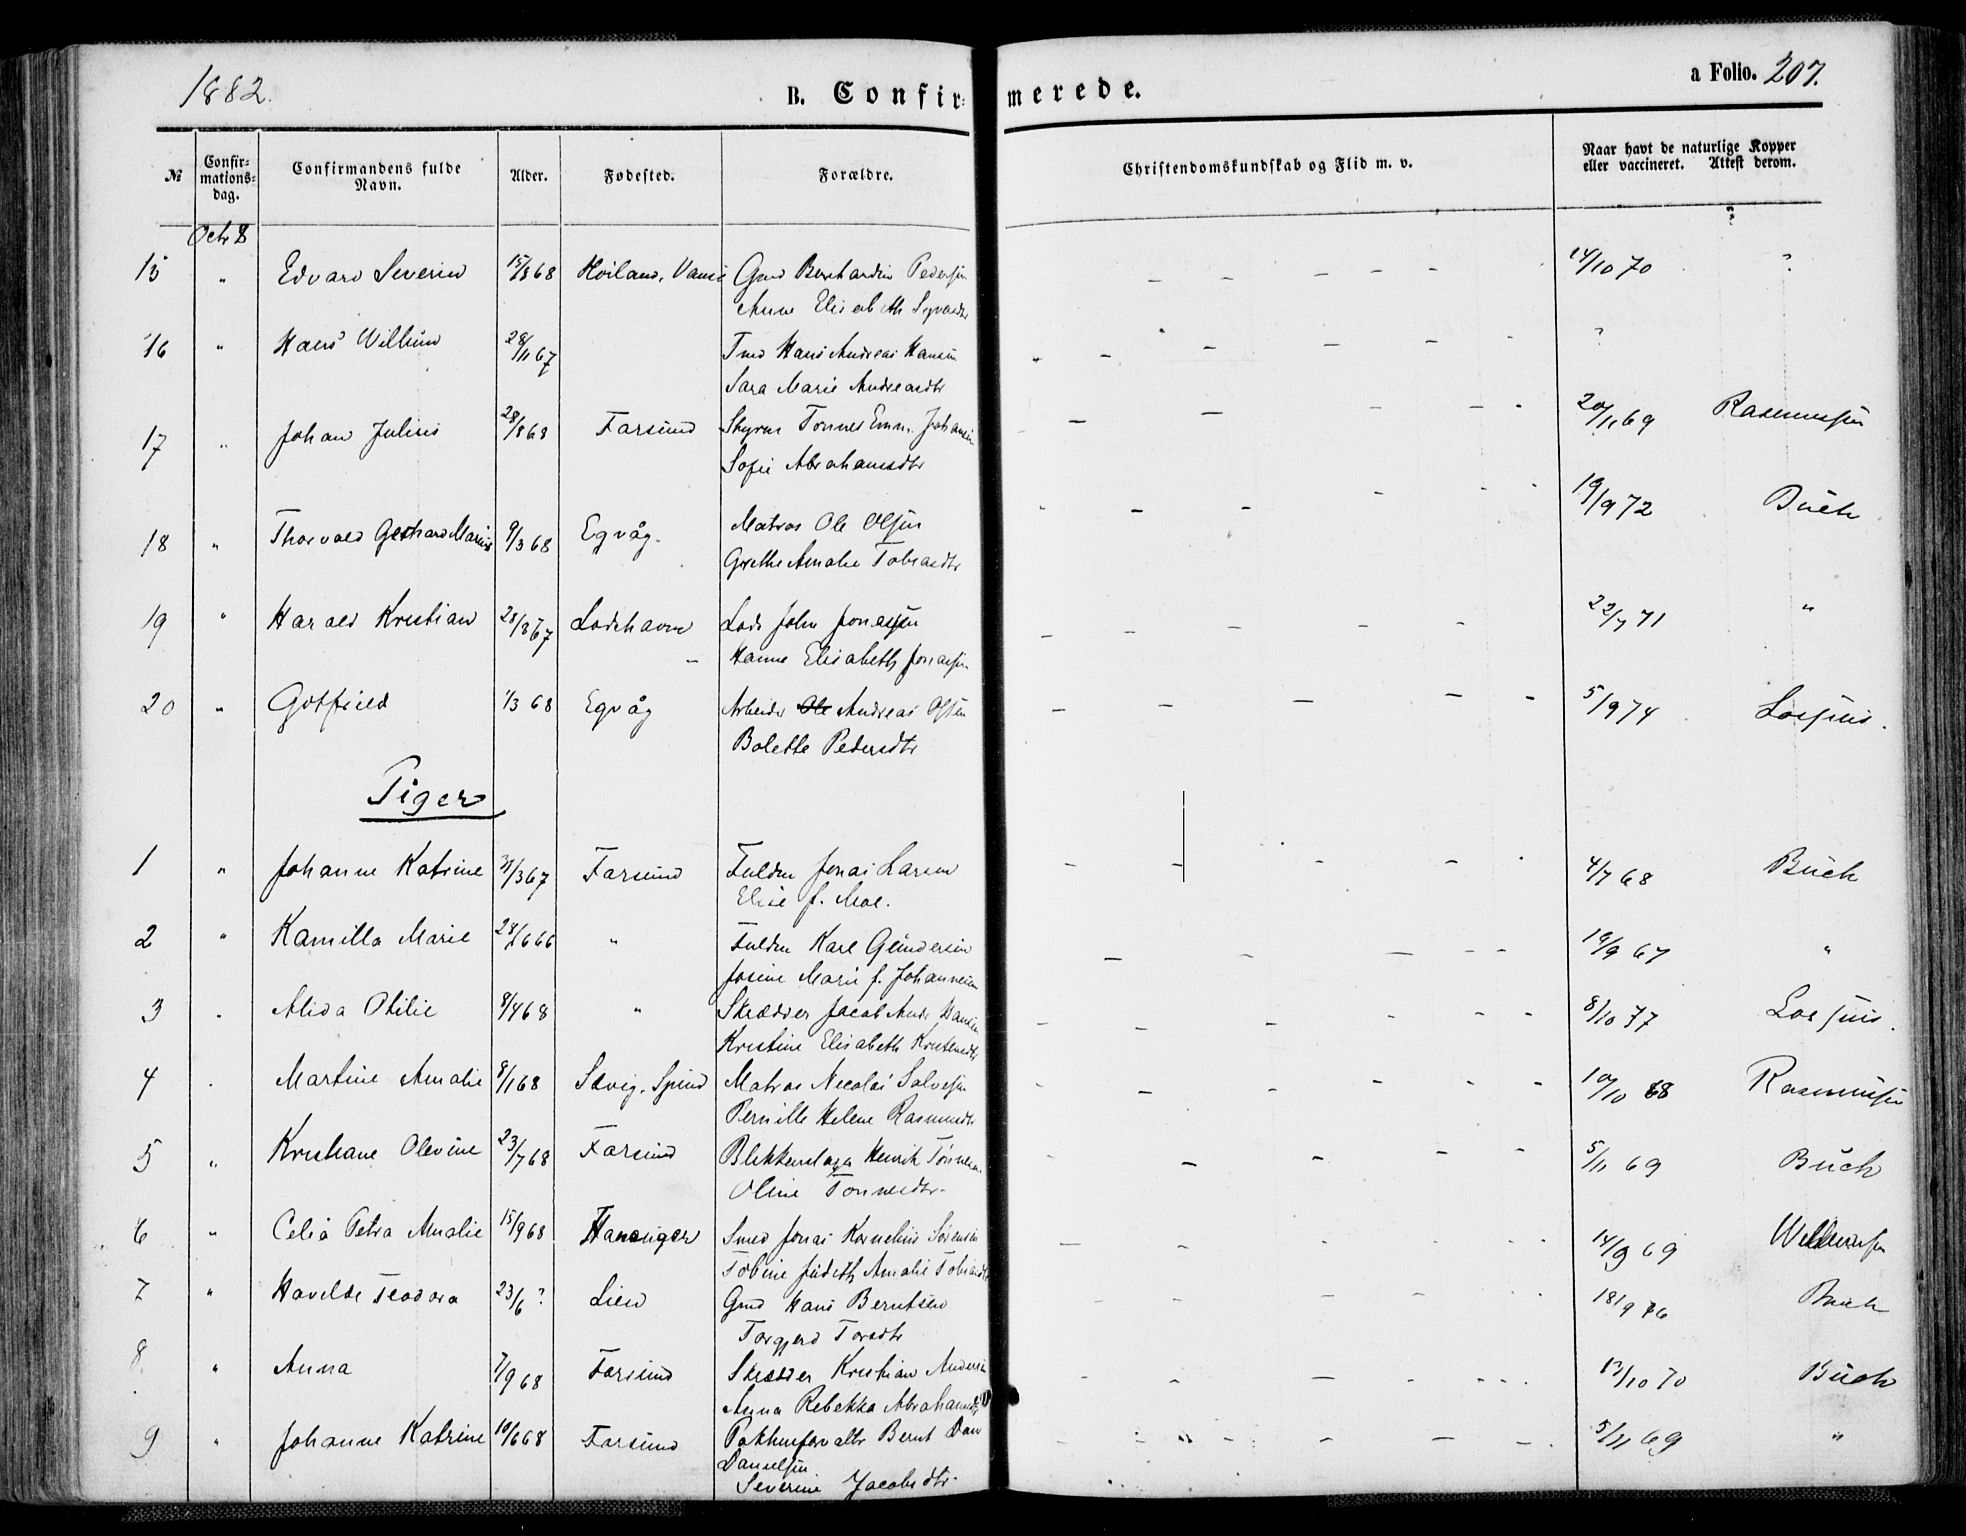 1882.
B. Confirmerede.
a Folio. 207.
№ Confirmationsdag. Confirmandens fulde Navn. Alder. Fødested. Forældre. Christendomskundskab og Flid m. v. Naar havt de naturlige Kopper eller vaccineret. Attest derom.
Octr 8 ?
15 " Edvard Severin 15/8 68 Høiland, Vanse Gmd Bernhardin Pedersen - - - - - 14/10 70 ?
Anne Elisabeth
16 " Hans Wilhim 28/11 67 Tmd Hans Andreas Hansen - - - - - ?
Sara Marie Andreasdtr
17 " Johan Julius 28/8 68 Farsund Styrm Tønnes Emm. Johansen - - - - - 20/11 69 Rasmussen
Sofie Abrahamsdtr
18 " Thorvald Gerhard Marius 9/3 68 Egvåg. Matros Ole Olsen - - - - - - 19/9 72 Buch
Grethe Amalie Tobiasdtr
19 " Harald Kristian 28/8 67 Lodshavn Lods John Jonassen - - - - - 22/7 71 "
Hanne Elisabeth Jonassen
20 " Gotfried 1/3 68 Egvåg Arbeider Ole Andreas Olsen - - - - - 5/9 74 Lossius.
Bolette Pedersdtr
Piger
1 " Johanne Katrine 31/3 67 Farsund Fuldm Jonas Larsen - - - - 4/7 68 Buch
Elise f. Moe.
2 " Kamilla Marie 28/6 66 " Fuldm Karl Gundersen - - - - - 19/9 67 "
Josine Marie f. Johannesen
3 . Alida Otilie 8/4 68 " Skrædder Jacob Andr Hansen - - - - - - 8/10 77 Lossius.
Kristine Elisabeth
4 . Martine Amalie 8/1 68 Sævig, Spind Matros Nicolai Salvesen - - - - - - 10/10 68 Rasmussen
Pernille Helene Rasmusdtr
5 " Kristiane Olevine 23/7 68 Farsund Blikkenslager Henrik Tønnesen - - - - - 5/11 69 Buch
Oline Tønnesdtr.
6 " Celia Petra Amalie 15/9 68 Smed Jonas Kornelius Sørensen - - - - - 14/9 69 Willumsen
Tobine Judith Amalie Tobiasdtr
7 " Havilde Teodora 23/6 ? Lien Gmd Hans Berntsen - - - - - 18/9 76 Buch
Torgjerd Torsdtr
8 " Anna 7/9 68 Farsund Skrædder Kristian Andersen - - - - - - - 13/10 70 Buch
Anna Rebekka Abrahamsdtr
9 " Johanne Katrine 10/6 68 Farsund Pakhusforvalter Bernt Dan - - - - - - - 5/11 69 "
Danielsen
Severine Jacobsdtr.